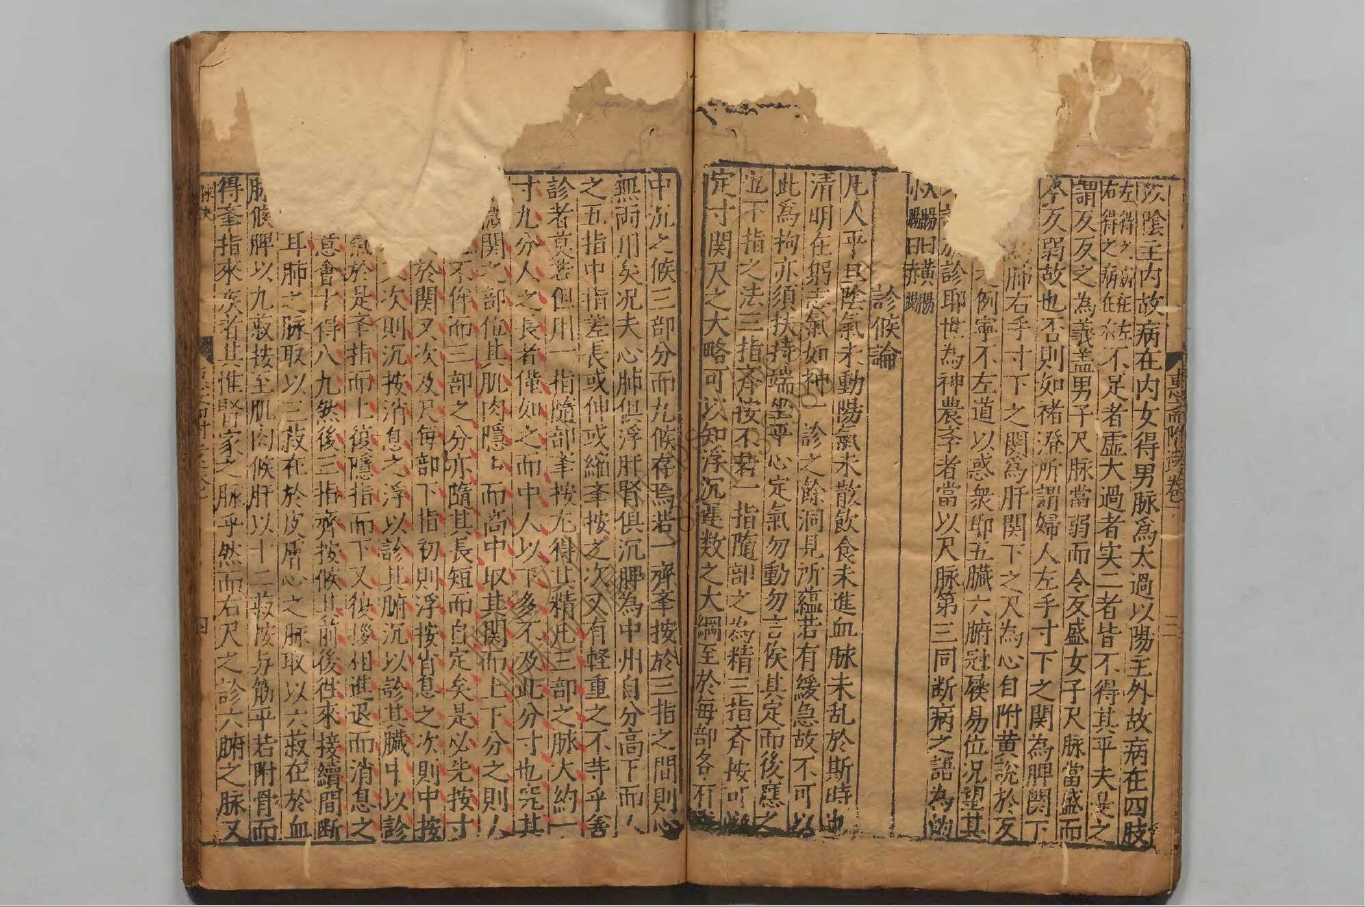 陰主內故病在內女得男脉為太過以陽主外故病在四肢
左得之病在左
右得之病在右
不足者虛大過者实二者皆不得其平夫是之
謂反反之為義盖男子尺脉當弱而今反盛女子尺脉當盛而
今反弱故也否則如禇澄所謂婦人左手寸下之関為脾関下
肺右手寸下之関為肝関下之尺為心自附黄說於反
例寧不左道以惑衆耶五臟六腑冠屨易位况望其
診耶世為神農李者當以尺脉第三同断病之語為的
大腸曰黃腸
小腸曰赤腸
診候論
凡人平旦陰氣未動陽氣未散飲食未進血脉未乱於斯時也
清明在躬志氣如神一診之餘洞見所蘊若有緩急故不可以
此為拘亦須扶持端坐平心定氣勿動勿言俟其定而後應之
宜下指之法三指齊按不若一指隨部之為精三指斉按可以
定寸関尺之大略可以知浮沉遲数之大綱至於每部各有
中沉之候三部分而九候存焉若一齊按於三指之間則心
無兩用矣况夫心肺俱浮肝腎俱沉脾為中州自分高下而人
之五指中指差長或伸或縮按之次又有軽重之不䓁乎善
診者莫若但用一指隨部按尤得其精也三部之脉大約一
寸九分人之長者偕如之而中人以下多不及此分寸也究其
関之部位其肌肉隱而高中取其関而上下分之則人
不侔而三部之分亦隨其長短而自定矣是以先按寸
於関又次及尺每部下指初則浮按消息之次則中按
次則沉按消息之浮以診其腑沉以診其臟中以診
氣於是指而上復隱指而下又復相進退而消息之
意會十得八九然後三指齊按候其前後徃來接續間断
耳肺之脉取以三菽在於皮膚心之脉取以六菽在於血
脉候脾以九菽按至肌肉候肝以十二菽按与筋平若附骨而
得指來疾者其惟腎家之脉乎然而右尺之診六腑之脉又
四